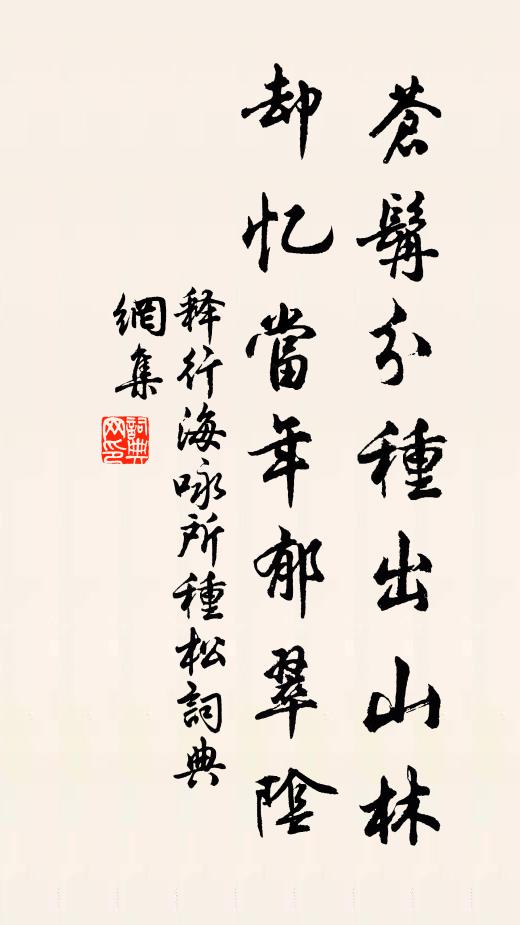 蒼髯分種出山林
却忆當年郁翠陰
释行海咏所種松詞典
網集
詞典
网印